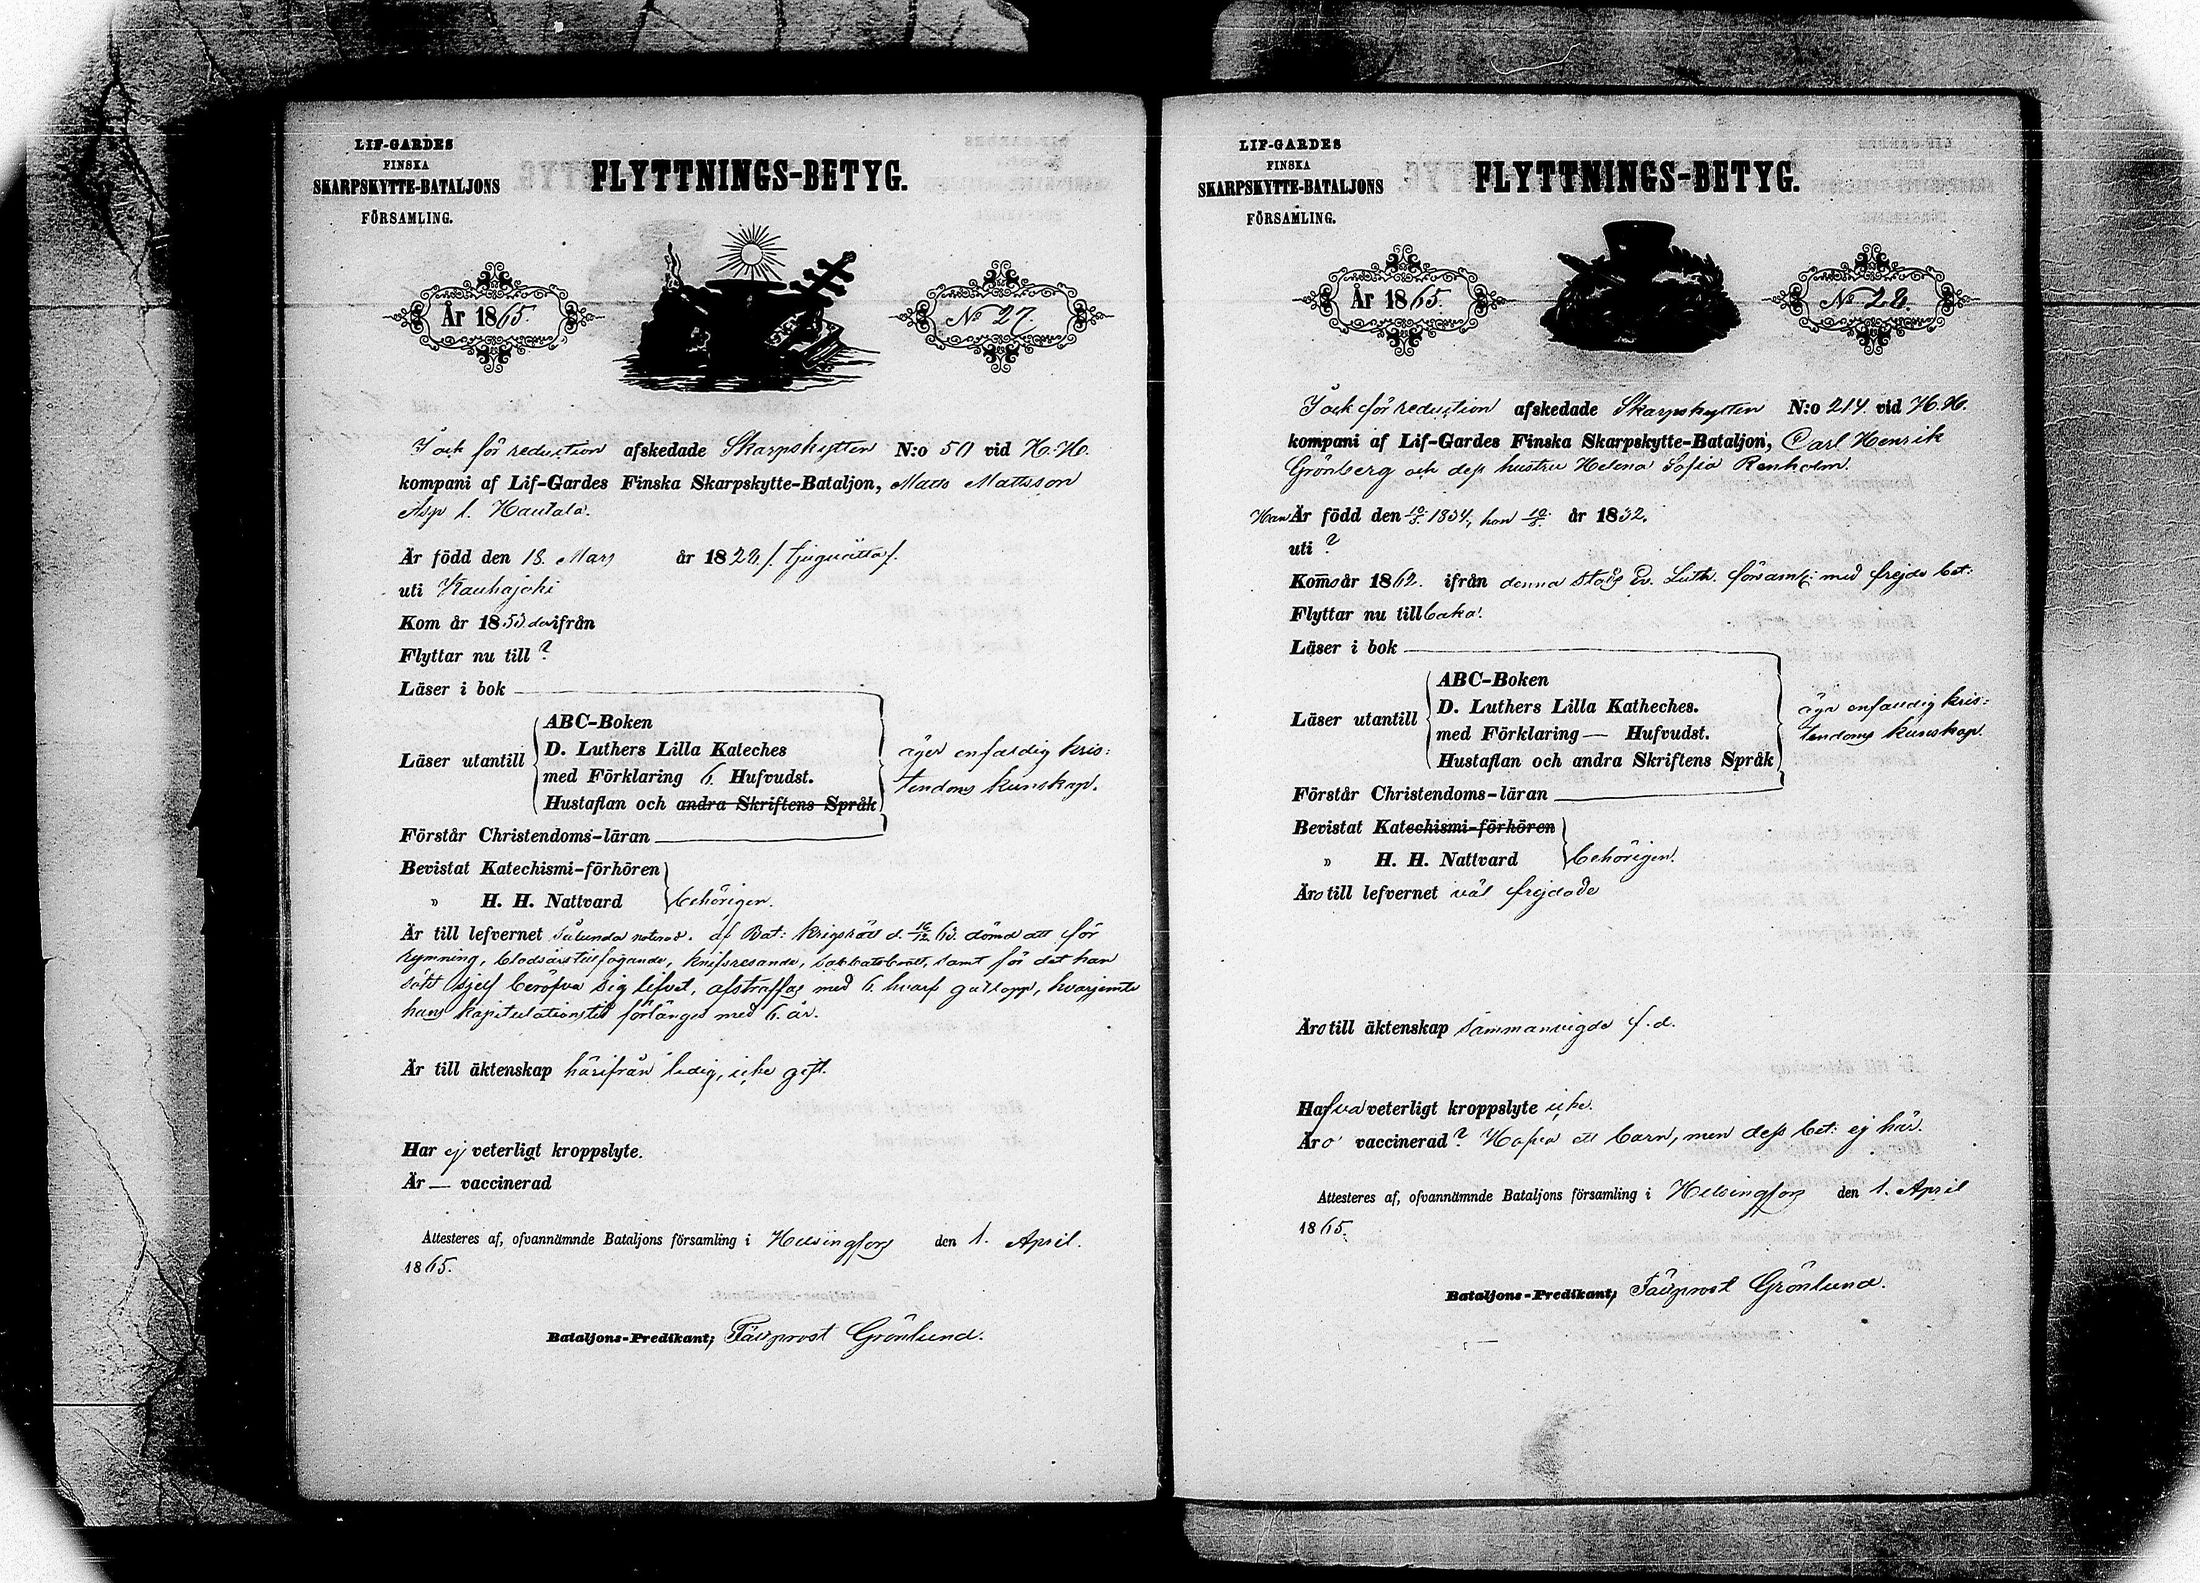 LIF-GARDES
FINSKA
SKARPSKYTTE-BATALJONS
FÖRSAMLING.
FLYTTNINGS-BETYG.
År 1865.
No 27.
I och för reduction afskedade Skarpskytten N:o 50 vid H. H.
kompani af Lif-Gardes Finska Skarpskytte-Bataljon, Matts Mattsson
Asp l. Hautala.
Är född den 18. Mars år 1828 /: tjuguåtta /:
uti Kauhajoki
Kom år 1853. ifrån
Flyttar nu till ?
Läser i bok
Läser utantill
ABC-Boken
D. Luthers Lilla Kateches
med Förklaring 6. Hufvudst.
Hustaflan och andra Skriftens Språk
äger enfaldig kris-
tendoms kunskap.
Förstår Christendoms-läran
Bevistat Katechismi-förhören
„ H. H. Nattvard
behörigen.
Är till lefvernet sålunda noterad. af Bat: Krigsrätt d. 16/12 63. dömd att för
rymning, blodsårstillfogande, knifsresande, sabbatsbrott, samt för det han
sökt sjelf beröfva sig lifvet, afstraffas med 6. hvarf gatlopp, hvarjemte
hans kapitulationstid förlänges med 6. år.
Är till äktenskap härifrån ledig, icke gift.
Har ej veterligt kroppslyte.
Är — vaccinerad
Attesteres af, ofvannämnde Bataljons församling i Helsingfors den 1. April.
1865.
Bataljons-Predikant, Fältprost Grönlund.
LIF-GARDES
FINSKA
SKARPSKYTTE-BATALJONS
FÖRSAMLING.
FLYTTNINGS-BETYG.
År 1865.
No 28.
I och för reduction afskedade Skarpskytten N:o 214. vid H. H.
kompani af Lif-Gardes Finska Skarpskytte-Bataljon, Carl Henrik
Grönberg och dess hustru Helena Sofia Renholm.
Han Är född den 1834, hon år 1832.
uti ?
Komo år 1862. ifrån denna stads Ev. Luth. församl: med frejde bet:
Flyttar nu tillbaka.
Läser i bok
Läser utantill
ABC-Boken
D. Luthers Lilla Katheches.
med Förklaring — Hufvudst.
Hustaflan och andra Skriftens Språk
äga enfaldig kris-
tendoms kunskap.
Förstår Christendoms-läran
Bevistat Katechismi-förhören
„ H. H. Nattvard
behörigen.
Äro till lefvernet väl frejdade
Äro till äktenskap sammanvigde f. d.
Hafva veterligt kroppslyte icke.
Äro vaccinerad? Hafva ett barn, men dess bet: ej här.
Attesteres af, ofvannämnde Bataljons församling i Helsingfors den 1. April
1865.
Bataljons-Predikant, Fältprost Grönlund.